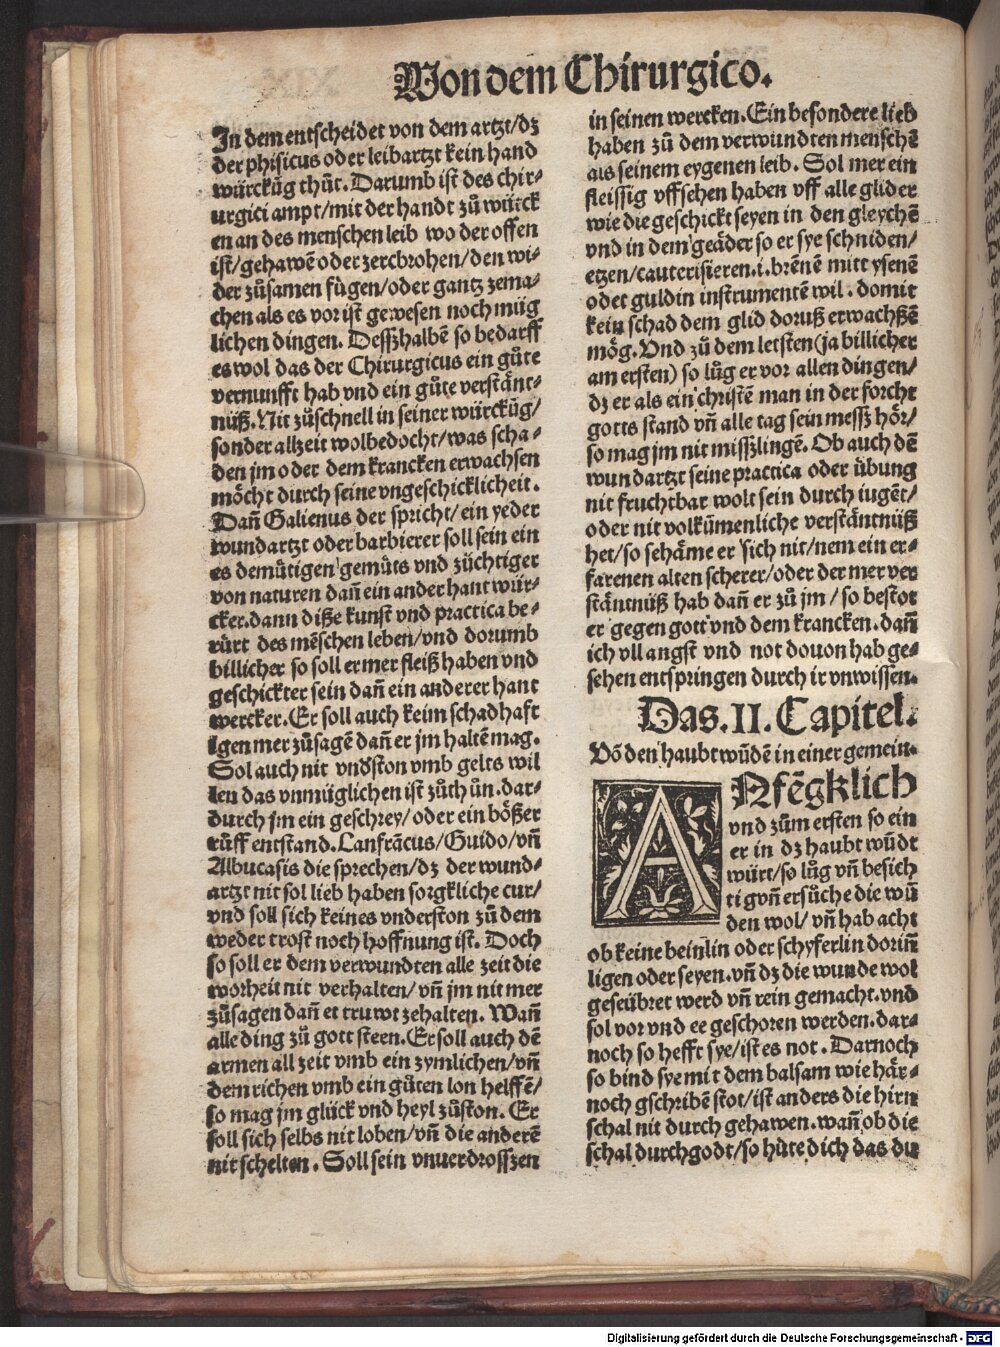 Von dem Chirurgico.
In dem entscheidet von dem artzt/dz
der phisicus oder leibartzt kein hand
würckūg thůt. Darumb ist des chir⸗
urgici ampt/mit der handt zů würck
en an des menschen leib wo der offen
ist/gehawē oder zerbrohen/den wi⸗
der zůsamen fügen/oder gantz zema⸗
chen als es vor ist gewesen noch müg
lichen dingen. Deßzhalbē so bedarff
es wol das der Chirurgicus ein gůte
vernunfft hab vnd ein gůte verstänt⸗
nüß. Nit zůschnell in seiner würckūg/
sonder allzeit wolbedocht/was scha⸗
den jm oder dem krancken erwachsen
möcht durch seine vngeschicklicheit.
Dañ Galienus der spricht/ein yeder
wundartzt oder barbierer soll sein ein
es demütigen gemüts vnd züchtiger
von naturen dañ ein ander hant wür⸗
cker. dann diße kunst vnd practica be⸗
rürt des mēschen leben/vnd dorumb
billicher so soll er mer fleiß haben vnd
geschickter sein dañ ein anderer hant
wercker. Er soll auch keim schadhaft
igen mer zůsagē dañ er jm haltē mag.
Sol auch nit vndston vmb gelts wil
len das vnmüglichen ist zůthůn. dar⸗
durch jm ein geschrey/oder ein bößer
rüff entstand. Lanfrācus/Guido/vñ
Albucasis die sprechen/dz der wund⸗
artzt nit sol lieb haben sorgkliche cur/
vnd soll sich keines vnderston zů dem
weder trost noch hoffnung ist. Doch
so soll er dem verwundten alle zeit die
worheit nit verhalten/vñ jm nit mer
zůsagen dañ er truwt zehalten. Wañ
alle ding zů gott steen. Er soll auch dē
armen all zeit vmb ein zymlichen/vñ
dem richen vmb ein gůten lon helffē/
so mag jm glück vnd heyl zůston. Er
soll sich selbs nit loben/vñ die anderē
nit schelten. Soll sein vnuerdrosszen
in seinen wercken. Ein besondere lieb
haben zů dem verwundten menschē
als seinem eygenen leib. Sol mer ein
fleissig vffsehen haben vff alle glider
wie die geschickt seyen in den gleychē
vnd in dem geäder so er sye schniden/
etzen/cauterisieren.i.brēnē mitt ysenē
oder guldin instrumentē wil. domit
kein schad dem glid doruß erwachßē
mög. Vnd zů dem letsten (ja billicher
am ersten) so lůg er vor allen dingen/
dz er als ein christē man in der forcht
gotts stand vñ alle tag sein messz hör/
so mag jm nit misszlingē. Ob auch dē
wundartzt seine practica oder übung
nit fruchtbar wolt sein durch iugēt/
oder nit volkümenliche verstäntnüß
het/so schäme er sich nit/nem ein er⸗
farenen alten scherer/oder der mer ver
stäntnüß hab dañ er zů jm/so bestot
er gegen gott vnd dem krancken. dañ
ich vll angst vnd not douon hab ge⸗
sehen entspringen durch ir vnwissen.
Das.II.Capitel.
Vō den haubt wūdē in einer gemein.
ANfēgklich
vnd zům ersten so ein
er in dz haubt wūdt
würt/so lůg vñ besich
tigvñ ersůche die wū
den wol/vñ hab acht
ob keine beinlin oder schyferlin doriñ
ligen oder seyen. vñ dz die wunde wol
geseübret werd vñ rein gemacht. vnd
sol vor vnd ee geschoren werden. dar⸗
noch so hefft sye/ist es not. Darnoch
so bind sye mit dem balsam wie här⸗
noch gschribē stot/ist anders die hirn
schal nit durch gehawen. wañ ob die
schal durchgodt/so hüte dich das du
Digitalisierung gefördert durch die Deutsche Forschungsgemeinschaft - DFG